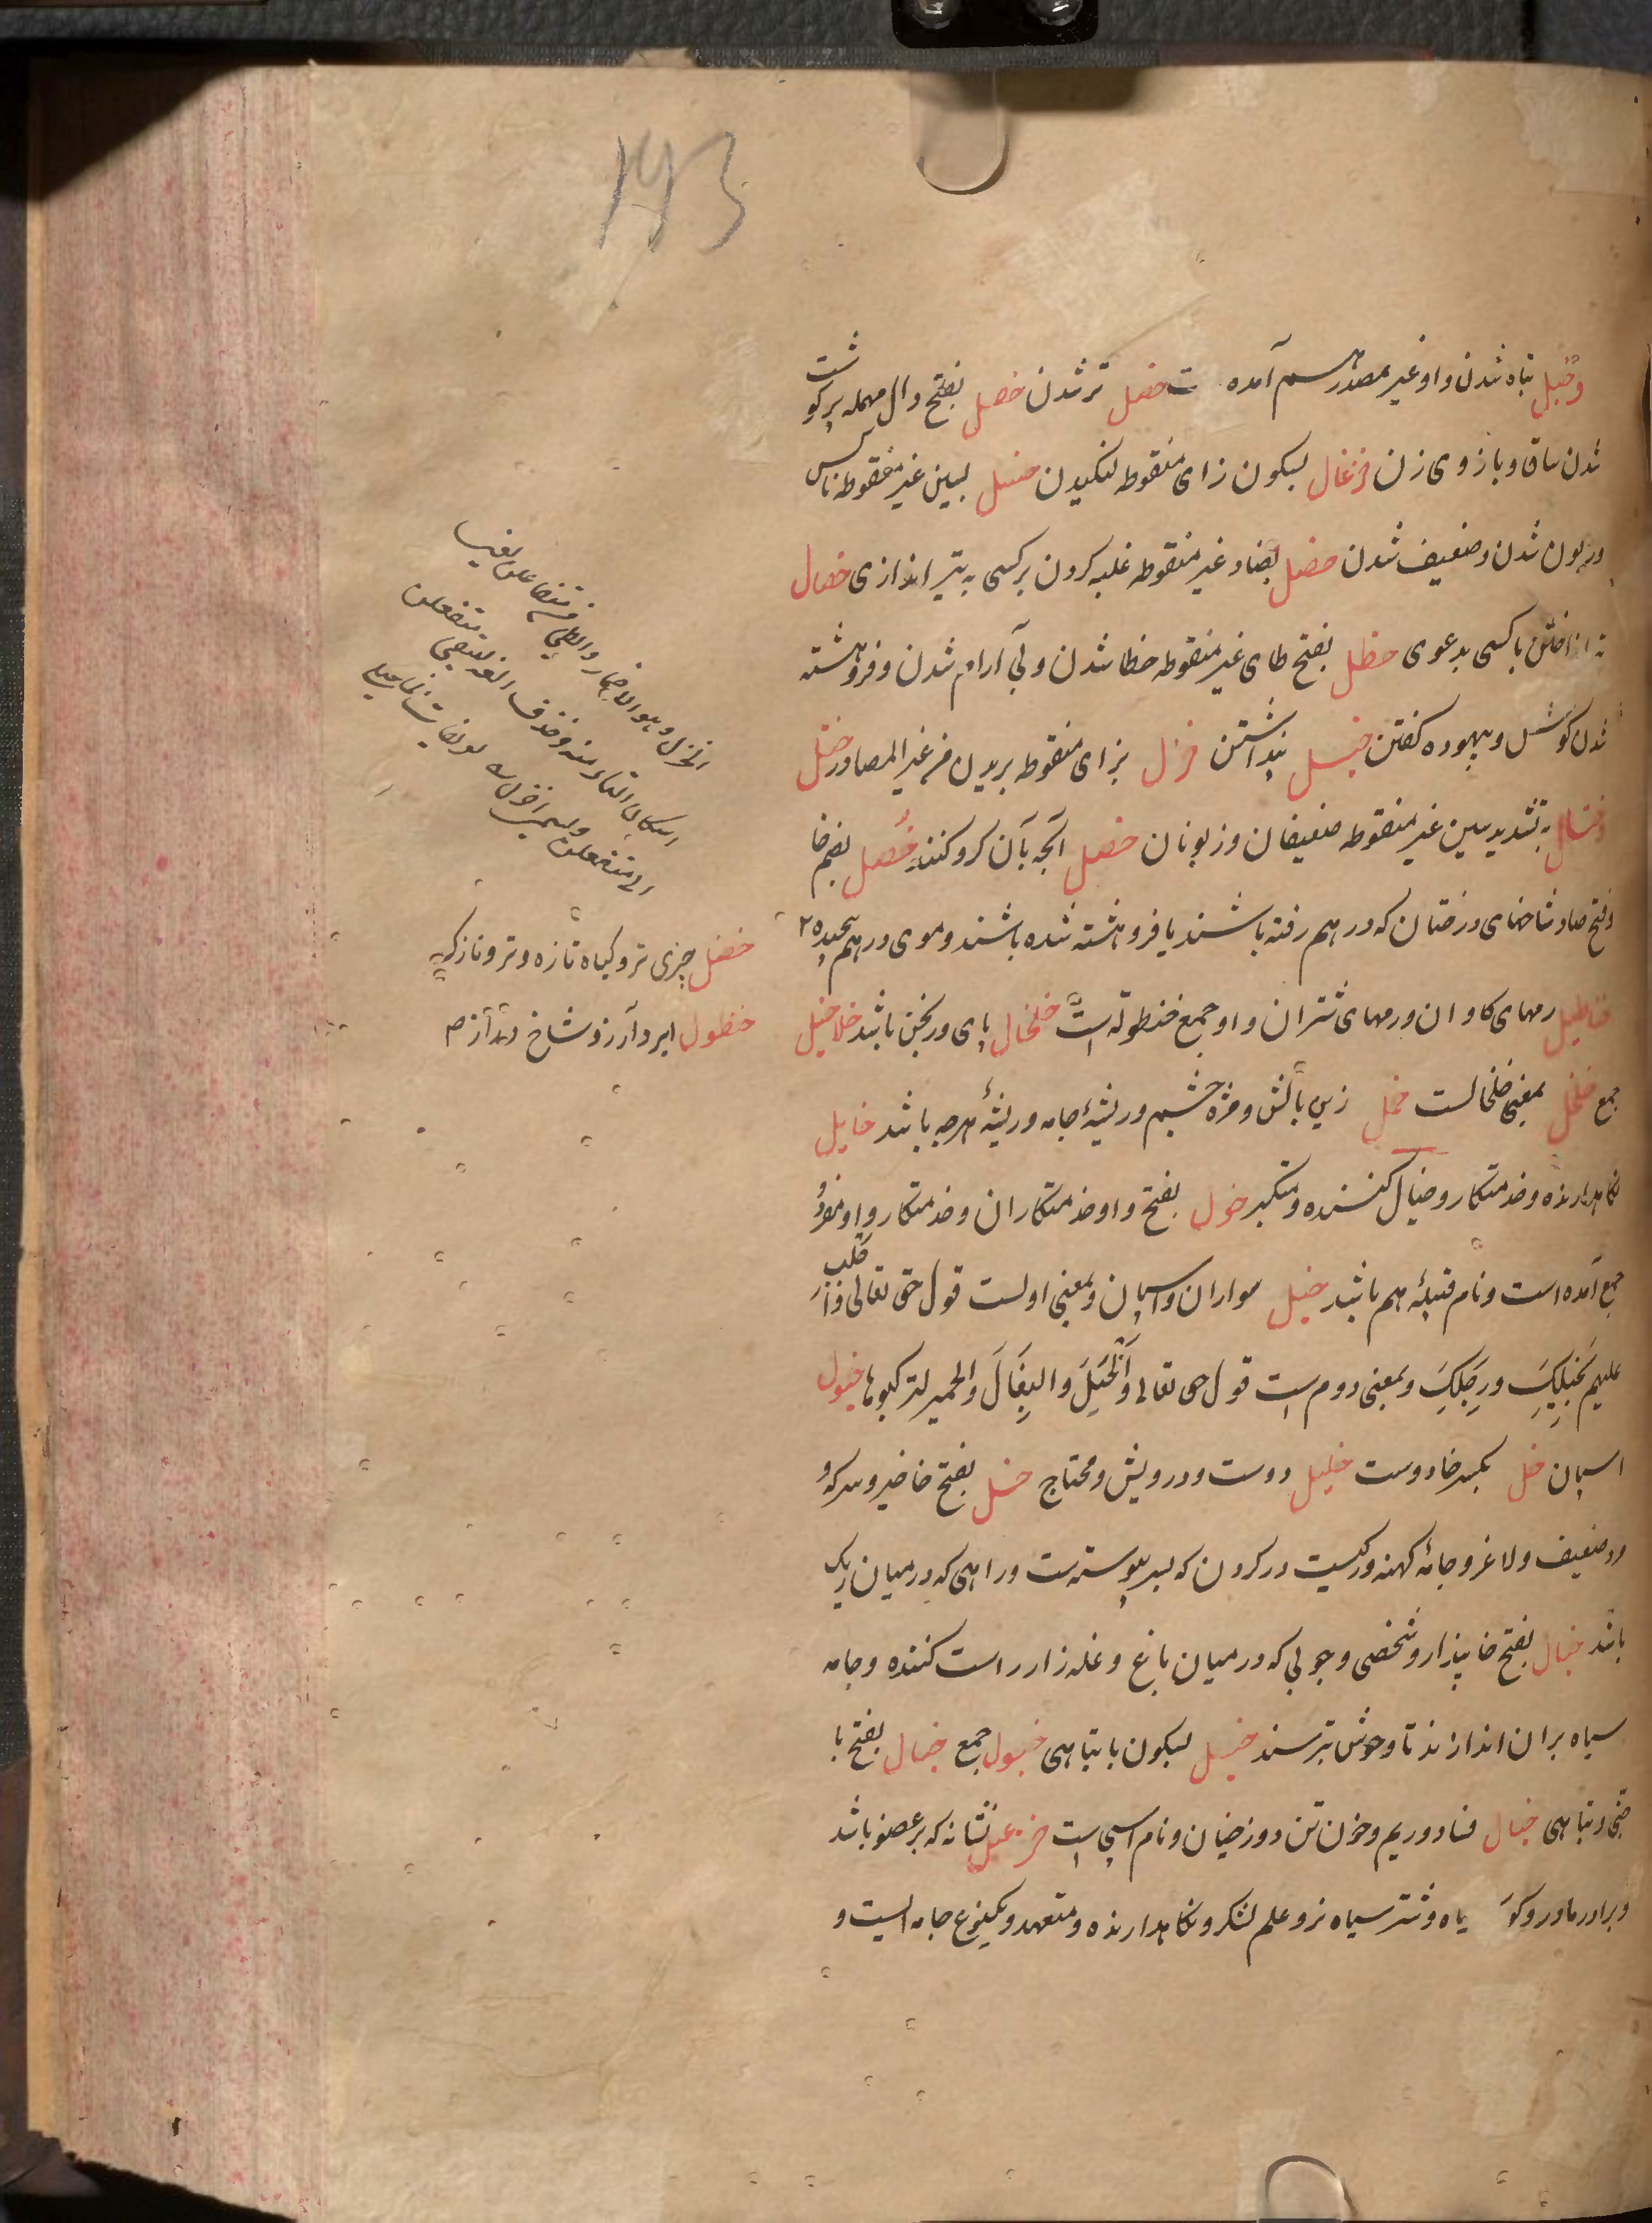 وخبل تباه شدن و او غیر مصدر هم اسم آمده است خضل تر شدن خدل بفتح دال مهمله پر گوشت
شدن ساق و بازوی زن خزعال بسکون زای منقوطه لنگیدن خسل بسین غیر منقوطه ناکس
و زبون شدن و ضعیف شدن خصل بصاد غیر منقوطه غلبه کردن بر کسی به تیر اندازی خصال
تیر انداختن با کسی بدعوی خطل بفتح طای غیر منقوطه خطا شدن و بی آرام شدن و فروهشته
شدن گوش و بیهوده گفتن خیل پنداشتن خزل بزای منقوطه بریدن من غیر المصادر خسل
وخسال به تشدید سین غیر منقوطه ضعیفان و زبونان خصل آنچه بآن گرو کنند خصل بضم خا
و فتح صاد شاخهای درختان که در هم رفته باشند یا فروهشته شده باشند و موی در هم پیچیده
خناطیل رمهای گاوان و رمهای شتران و او جمع خنطوله است خلخال پای ورنجن باشد خلاخیل
جمع خلخل بمعنی خلخالست خمل زیر بالش و مژه چشم و ریشهٔ جامه و ریشهٔ هرچه باشد خایل
نگاهدارنده و خدمتکار و خیال کننده و متکبر خول بفتح واو خدمتکاران و خدمتکار و او مفرد و
جمع آمده است و نام قبیلهٔ هم باشد خیل سواران و اسپان و بمعنی اولست قول حق تعالی و اجلب
علیهم بخیلک ورجلک و بمعنی دوم است قول حق تعالی والخیل والبغال والحمیر لترکبوها خیول
اسپان خل بکسر خا دوست خلیل دوست و درویش و محتاج خل بفتح خا خیر و سرکه و
مرد ضعیف و لاغر و جامهٔ کهنه و رگیست در گردن که بسر پیوسته است و راهی که در میان ریگ
باشد خیال بفتح خا پندار و شخصی و چوبی که در میان باغ و غله زار راست کننده و جامه
سیاه بران اندازند تا وحوش بترسند خبل بسکون با تباهی خبول جمع خبال بفتح با
جنی و تباهی خبال فساد و ریم و خون تن دوزخیان و نام اسپی است خزعبل نشانه که بر عضو باشد
و برادر مادر و کوه سیاه و شتر سیاه نر و علم لشکر و نگاهدارنده و متعهد و یکنوع جامه است و
الخزل وهو الاضمار والطی فی متفاعلن یعنی
اسکان التاء منه وحذف الفه لیبقی متفعلن
الی مفتعلن ویسمی اخزل
خضل چیزی تر و گیاه تازه و تر و نازک
خنطول ابر و آرزو شاخ دراز
193